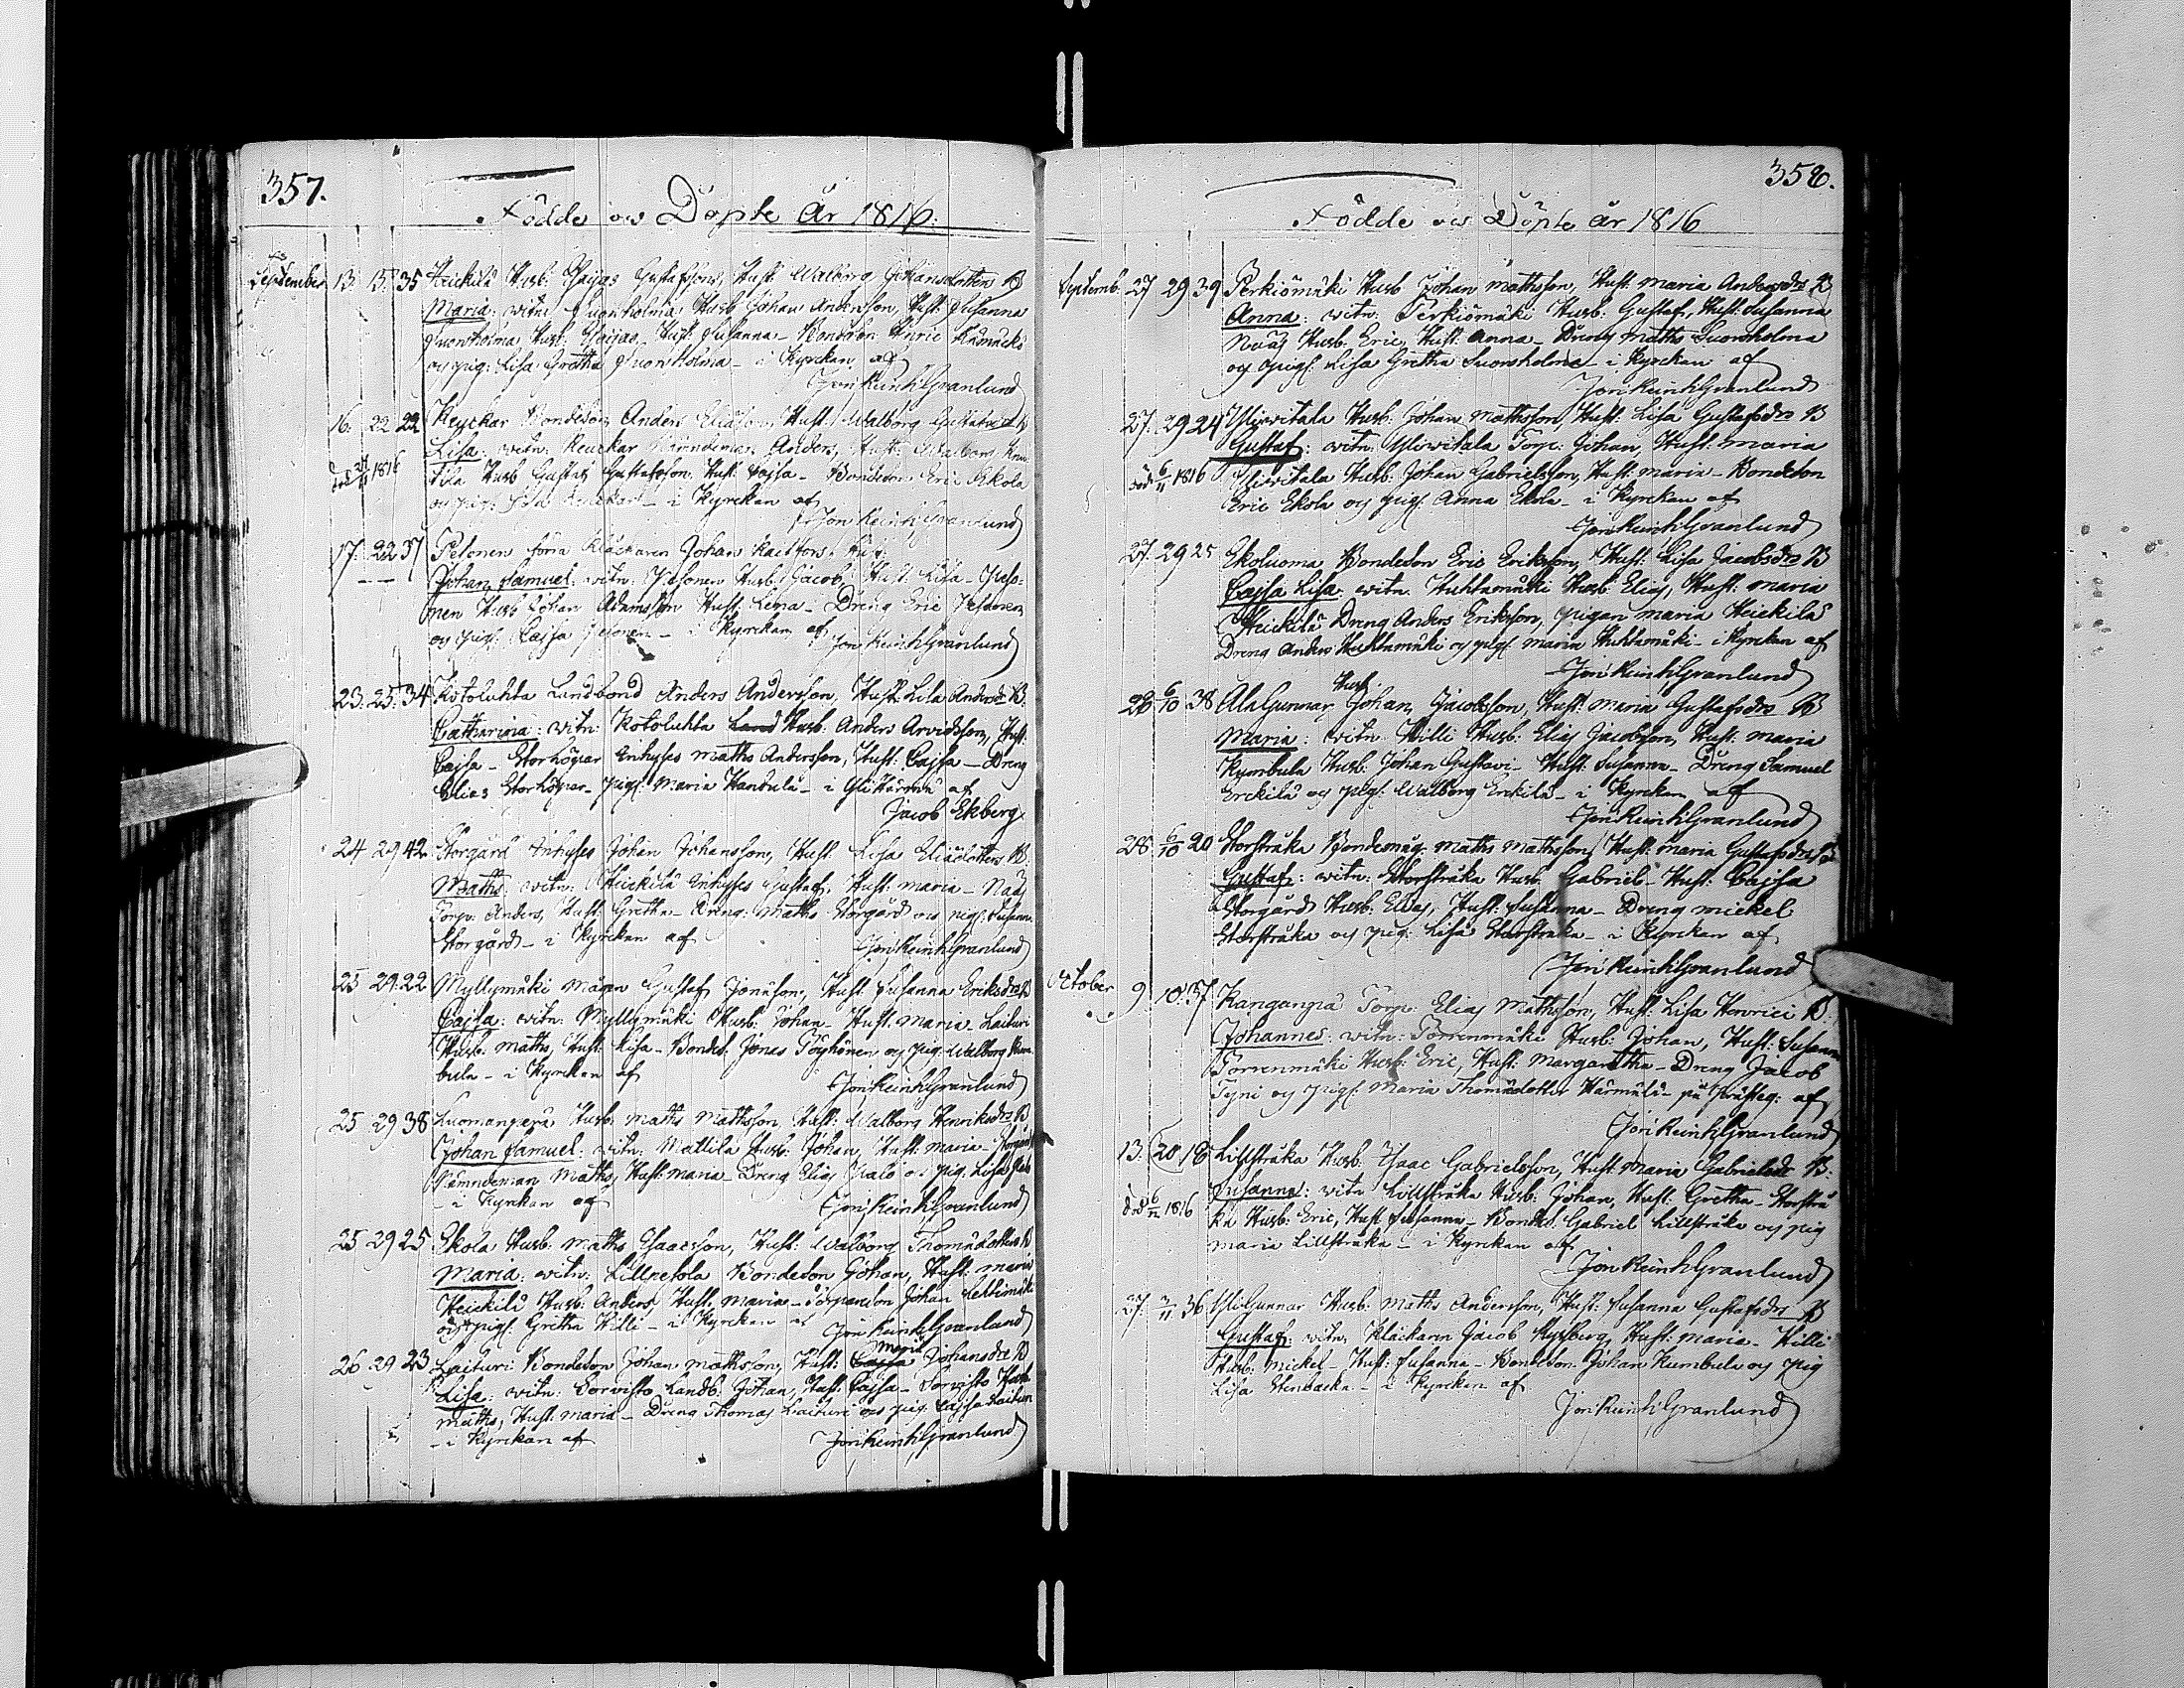 357.
Födde och Döpte år 1816.
September 13. 15. 35 Heickilä Husb: Esaijas Gustafsons, Hust: Walborg Johansdotters B
Maria: witn: Suonholma Husb Johan Andersson, Hust: Susanna
Suonholma Husb. Esaijas, Hust Susanna - Bondeson Henric
och pig: Lisa Gretha Suonholma - i Kyrckan af
Jon Reinh Granlund
16. 22 22 Keyckar Bondeson Anders Eliasson, Hust: Walborg Gustafsd B
Lisa: witn: Keyckar Nämndeman Anders, Hust: Walborg
död 1816 Husb Gustaf Gustafsson Hust: Cajsa - Bondeson Eric Ekola
och pig: Lisa - i Kyrckan af
Jon Reinh Granlund
17. 22 37 Pelonen förra Klåckaren Johan
Johan Samuel: witn: Pesonen Husb: Jacob, Hust: Lisa - Peso-
nen Husb Johan Adamsson Hust: Lena - Dreng Eric Pesonen
och pig: Cajsa Pesonen - i Kyrckan af Jon Reinh Granlund
23. 25. 34 Kotoluhta Landbond Anders Andersson, Hust: Lisa Andersdr B.
Catharina: witn: Kotoluhta Land Husb: Anders Arvidsson, Hust:
Cajsa - Storhöpar Inhyses Maths Andersson, Hust: Cajsa - Dreng
Elias Storhöpar - Pig: Maria Handula - i Ylihärmä af
Jacob Ekberg
24 29 42 Storgård Inhyses Johan Johansson, Hust: Lisa Eliædotters B.
Maths: witn: Heickilä Inhyses Gustaf, Hust: Maria - Naas
Torp: Anders, Hust: Gretha - Dreng: Maths Storgård och pig: Susanna
Storgård - i Kyrckan af Jon Reinh Granlund
25 29. 22 Myllymäki mågen Gustaf Jonæson, Hust: Susanna Ericsdrs B
Cajsa: witn: Myllymäki Husb: Johan - Hust: Maria - Laituri
Husb: Maths, Hust: Lisa - Bondes: Jonas Töyhönen och pig: Walborg Kum-
bula - i Kyrckan af Jon Reinh Granlund
25 29 38 Luomanperä Husb: Maths Mathsson, Hust: Walborg Henriksdrs B
Johan Samuel: witn: Mattila Husb: Johan, Hust: Maria -
Nämndeman Maths, Hust: Maria Dreng Elias och pig: Lisa
- i Kyrckan af Jon Reinh Granlund
25 29 25 Ekola Husb. Maths Esaacsson, Hust: Walborg Thomædotters B
Maria: witn: Lillpetola Bondeson Johan, Hust: Maria
Heickilä Husb: Anders, Hust: Maria - Torpareson Johan
och pig: Gretha Willi - i Kyrckan af Jon Reinh Granlund
26 29 23 Laituri Bondeson Johan Mathsson, Hust: Cajsa Maria Johansdrs B
Lisa: witn: Sorvisto Landb: Johan, Hust: Cajsa - Sorvisto Husb
Maths, Hust: Maria - Dreng Thomas Laituri och pig: Cajsa Laituri
- i Kyrckan af Jon Reinh Granlund
358.
Födde och Döpte år 1816
Septemb. 27 29 39 Perkiömäki Husb Johan Mathsson, Hust: Maria Andersdrs B
Anna: witn: Perkiömäki Husb: Gustaf, Hust: Susanna
Husb. Eric, Hust: Anna - Dreng Maths Suonholma
och pig: Lisa Gretha Suonholma - i Kyrckan af
Jon Reinh Granlund
27. 29 24 Yliwitala Husb: Johan Mathsson, Hust: Lisa Gustafsdrs B
Gustaf: witn: Yliwitala Torp: Johan, Hust: Maria
död 6/11 1816 Yliwitala Husb: Johan Gabrielsson, Hust: Maria - Bondeson
Eric Ekola och pig: Anna Ekola - i Kyrckan af
Jon Reinh Granlund
27. 29 25 Ekoluoma Bondeson Eric Eriksson, Hust: Lisa Jacobsdrs B
Cajsa Lisa: witn. Huhtamäki Husb: Elias, Hust: Maria
Heickilä Dreng Anders Eriksson, pigan Maria Heickilä
Dreng Anders Huhtamäki och pig: Maria Huhtamäki - i Kyrckan af
Jon Reinh Granlund
28 6/10 38 AlaGunnar Husb. Johan Jacobsson, Hust: Maria Gustafsdrs B
Maria: witn: Willi Husb: Elias Jacobsson, Hust: Maria
Kumbula Husb: Johan Gustavi - Hust: Susanna - Dreng Samuel
Erckilä och pig: Walborg Erckilä - i Kyrckan af
Jon Reinh Granlund
28. 6/10 20 Storstråka Bondemåg Maths Mathsson, Hust: Maria Gustafsdrs B
Gustaf: witn: Storstråka Husb: Gabriel - Hust: Cajsa
Storgård Husb: Elias, Hust: Susanna - Dreng Mickel
Storstråka och pig: Lisa Storstråka - i Kyrckan af
Jon Reinh Granlund
October 9. 10. 37 Kanganpä Torp: Elias Mathsson, Hust: Lisa Henrici B.
Johannes: witn: Porrenmäki Husb: Johan, Hust: Susanna
Porrenmäki Husb: Eric, Hust: Margaretha - Dreng Jacob
Tyni och pig: Maria Thomædotter Härmälä - på Prästeg: af
Jon Reinh Granlund
13. 20 18 Lillstråka Husb: Isaac Gabrielsson, Hust: Maria Gabrielsdr B.
Susanna: witn Lillstråka Husb: Johan, Hust: Gretha - Storstrå
död 6/12 1816 ka Husb: Eric, Hust Susanna - Bondes: Gabriel Lillstråka och pig
Maria Lillstråka - i Kyrckan af
Jon Reinh Granlund
27. 3/11 36 YliGunnar Husb: Maths Andersson, Hust: Susanna Gustafsdrs B
Gustaf: witn: Klåckaren Jacob Kyrberg, Hust: Maria - Willi
Husb: Mickel - Hust: Susanna - Bondeson Johan Kumbula och pig
Lisa Stenbacka - i Kyrckan af
Jon Reinh Granlund